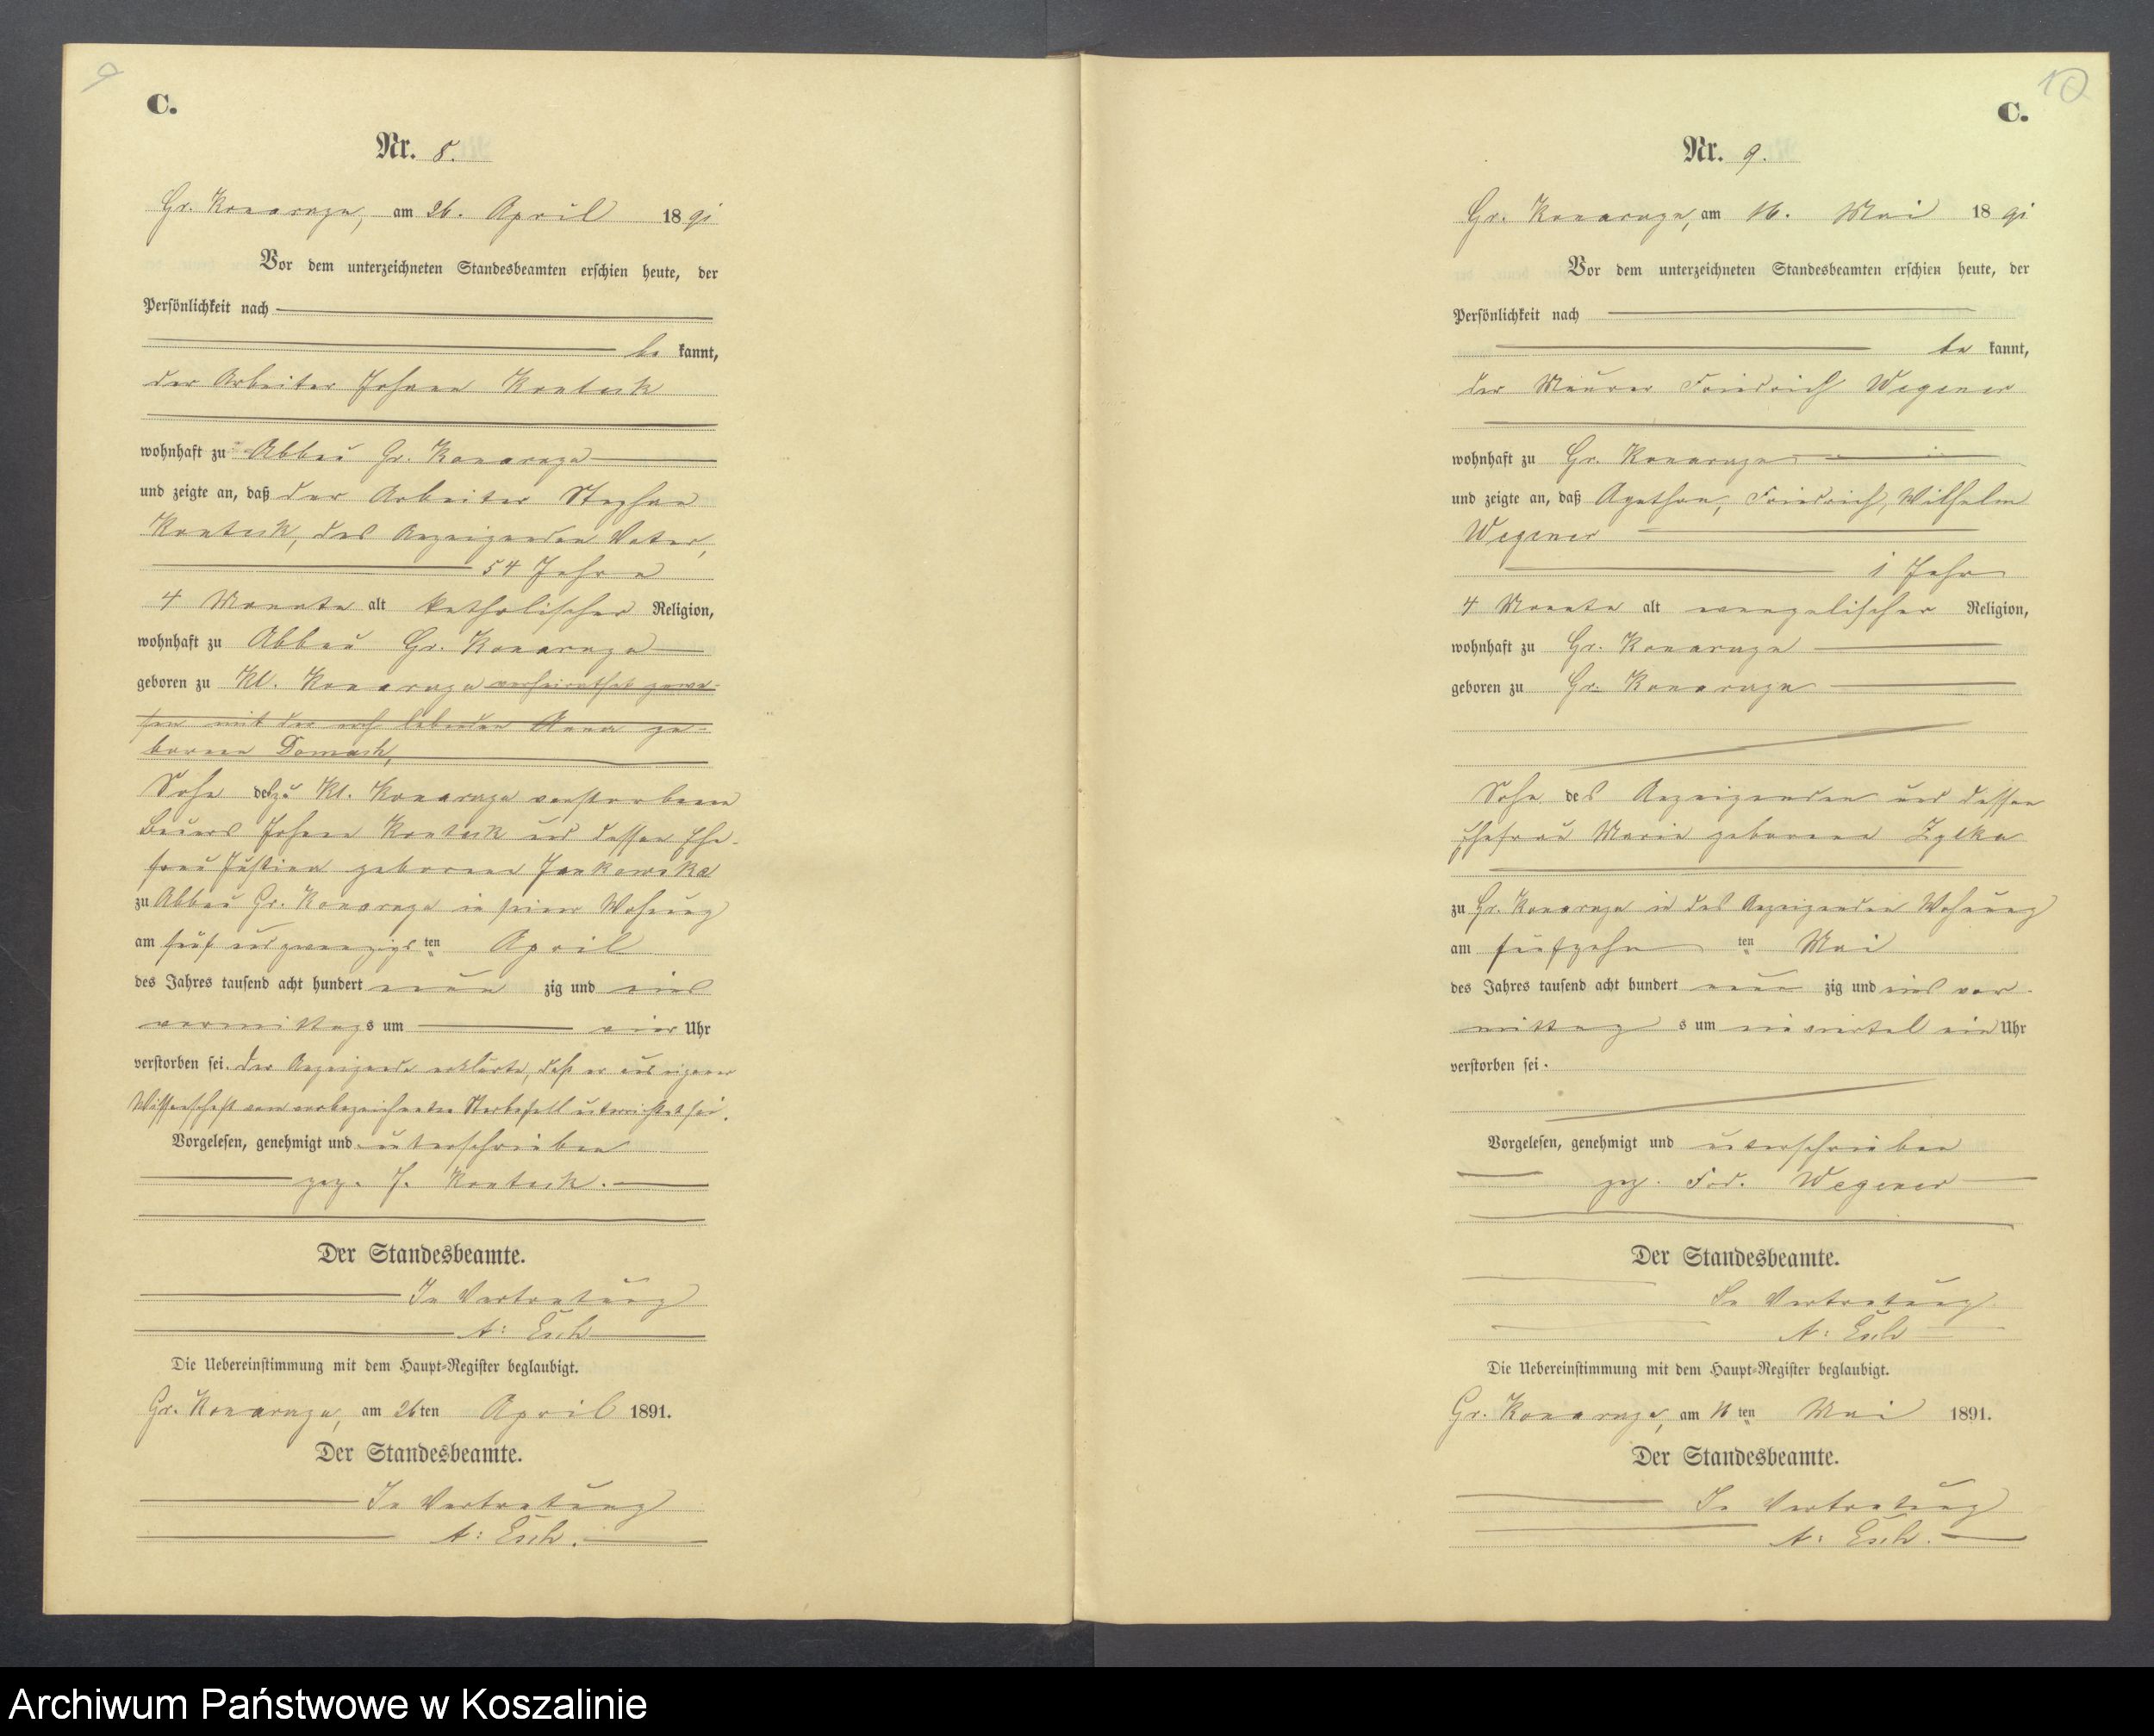 9
C.
Nr. 8.
Gr. Konarzyn, am 26. April 1891
Vor dem unterzeichneten Standesbeamten erschien heute, der
Persönlichkeit nach
be kannt,
der Arbeiter Johann Kontek
wohnhaft zu Abbau Gr. Konarzyn
und zeigte an, daß der Arbeiter Stephan
des Anzeigenden Vater,
54 Jahre
4 Monate alt katholischer Religion,
wohnhaft zu Abbau Gr. Konarzyn
geboren zu Kl. Konarzyn verheirathet gewe-
sen mit der noch lebenden Anna ge-
borene
Sohn des zu Kl. Konarzyn verstorbenen
Bauers Johann und dessen Ehe-
frau Justina geborene Jankowska
zu Abbau Gr. Konarzyn in seiner Wohnung
am fünf und zwanzigsten ten April
des Jahres tausend acht hundert neun zig und eins
vormittags um vier Uhr
verstorben sei. Der Anzeigende erklärte, daß er aus eigener
Wissenschaft vom vorbezeichneten Sterbefall unterrichtet sei.
Vorgelesen, genehmigt und unterschrieben
gez. J.
Der Standesbeamte.
In Vertretung
A: Esch
Die Uebereinstimmung mit dem Haupt-Register beglaubigt.
Gr. Konarzyn, am 26ten April 1891.
Der Standesbeamte.
In Vertretung
A: Esch.
10
C.
Nr. 9.
Gr. Konarzyn, am 16. Mai 1891
Vor dem unterzeichneten Standesbeamten erschien heute, der
Persönlichkeit nach
be kannt,
der Maurer Friedrich Wegener
wohnhaft zu Gr. Konarzyn
und zeigte an, daß Agathon, Friedrich, Wilhelm
Wegener
1 Jahr
4 Monate alt evangelischer Religion,
wohnhaft zu Gr. Konarzyn
geboren zu Gr. Konarzyn
Sohn des Anzeigenden und dessen
Ehefrau Maria geborene
zu Gr. Konarzyn in des Anzeigenden Wohnung
am fünfzehn ten Mai
des Jahres tausend acht hundert neun zig und eins vor-
mittag s um ein viertel ein Uhr
verstorben sei.
Vorgelesen, genehmigt und unterschrieben
gez. Frd. Wegener
Der Standesbeamte.
In Vertretung
A: Esch
Die Uebereinstimmung mit dem Haupt-Register beglaubigt.
Gr. Konarzyn, am 16 ten Mai 1891.
Der Standesbeamte.
In Vertretung
A: Esch.
Archiwum Państwowe w Koszalinie